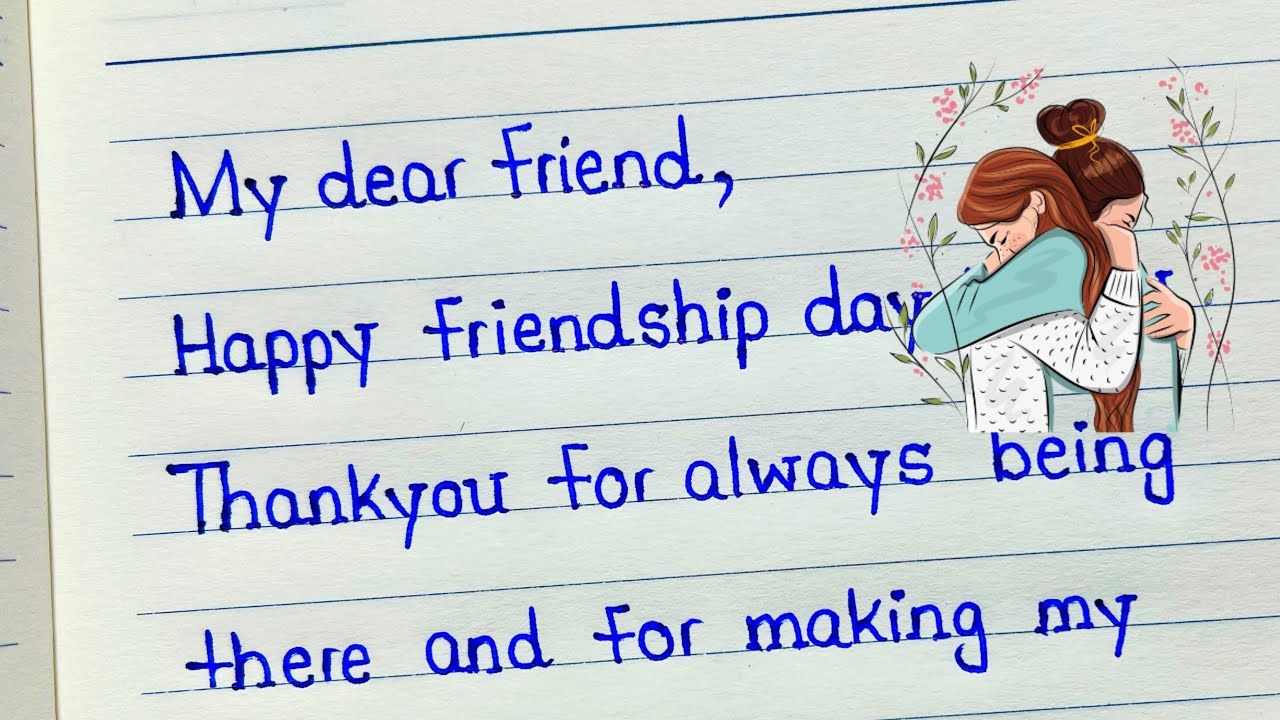 My dear friend,
Happy friendship day
Thankyou for always being
there and for making my